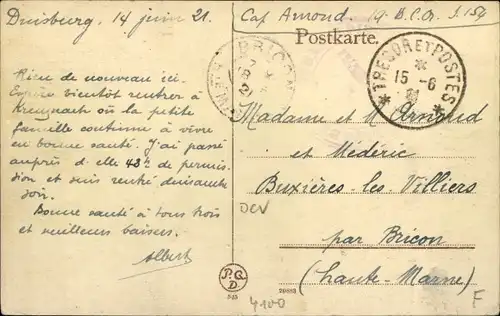 Duisburg, 14 juin 21.
Cap Arnoud
Postkarte.
TRESOR ET POSTES
15 -6
21
BRICON
Rien de nouveau ici.
Espère bientôt rentrer à
Kreuznach où la petite
famille continue à vivre
en bonne santé. J'ai passé
auprès d'elle 48h de permis-
sion et suis rentré dimanche
soir.
Bonne santé à tous trois
et meilleurs baisers.
Albert
Madame et M Arnoud
et Médéric
Buxières-les Villiers
par Bricon
(Haute-Marne)
DCV
P.G.
D
4100
F